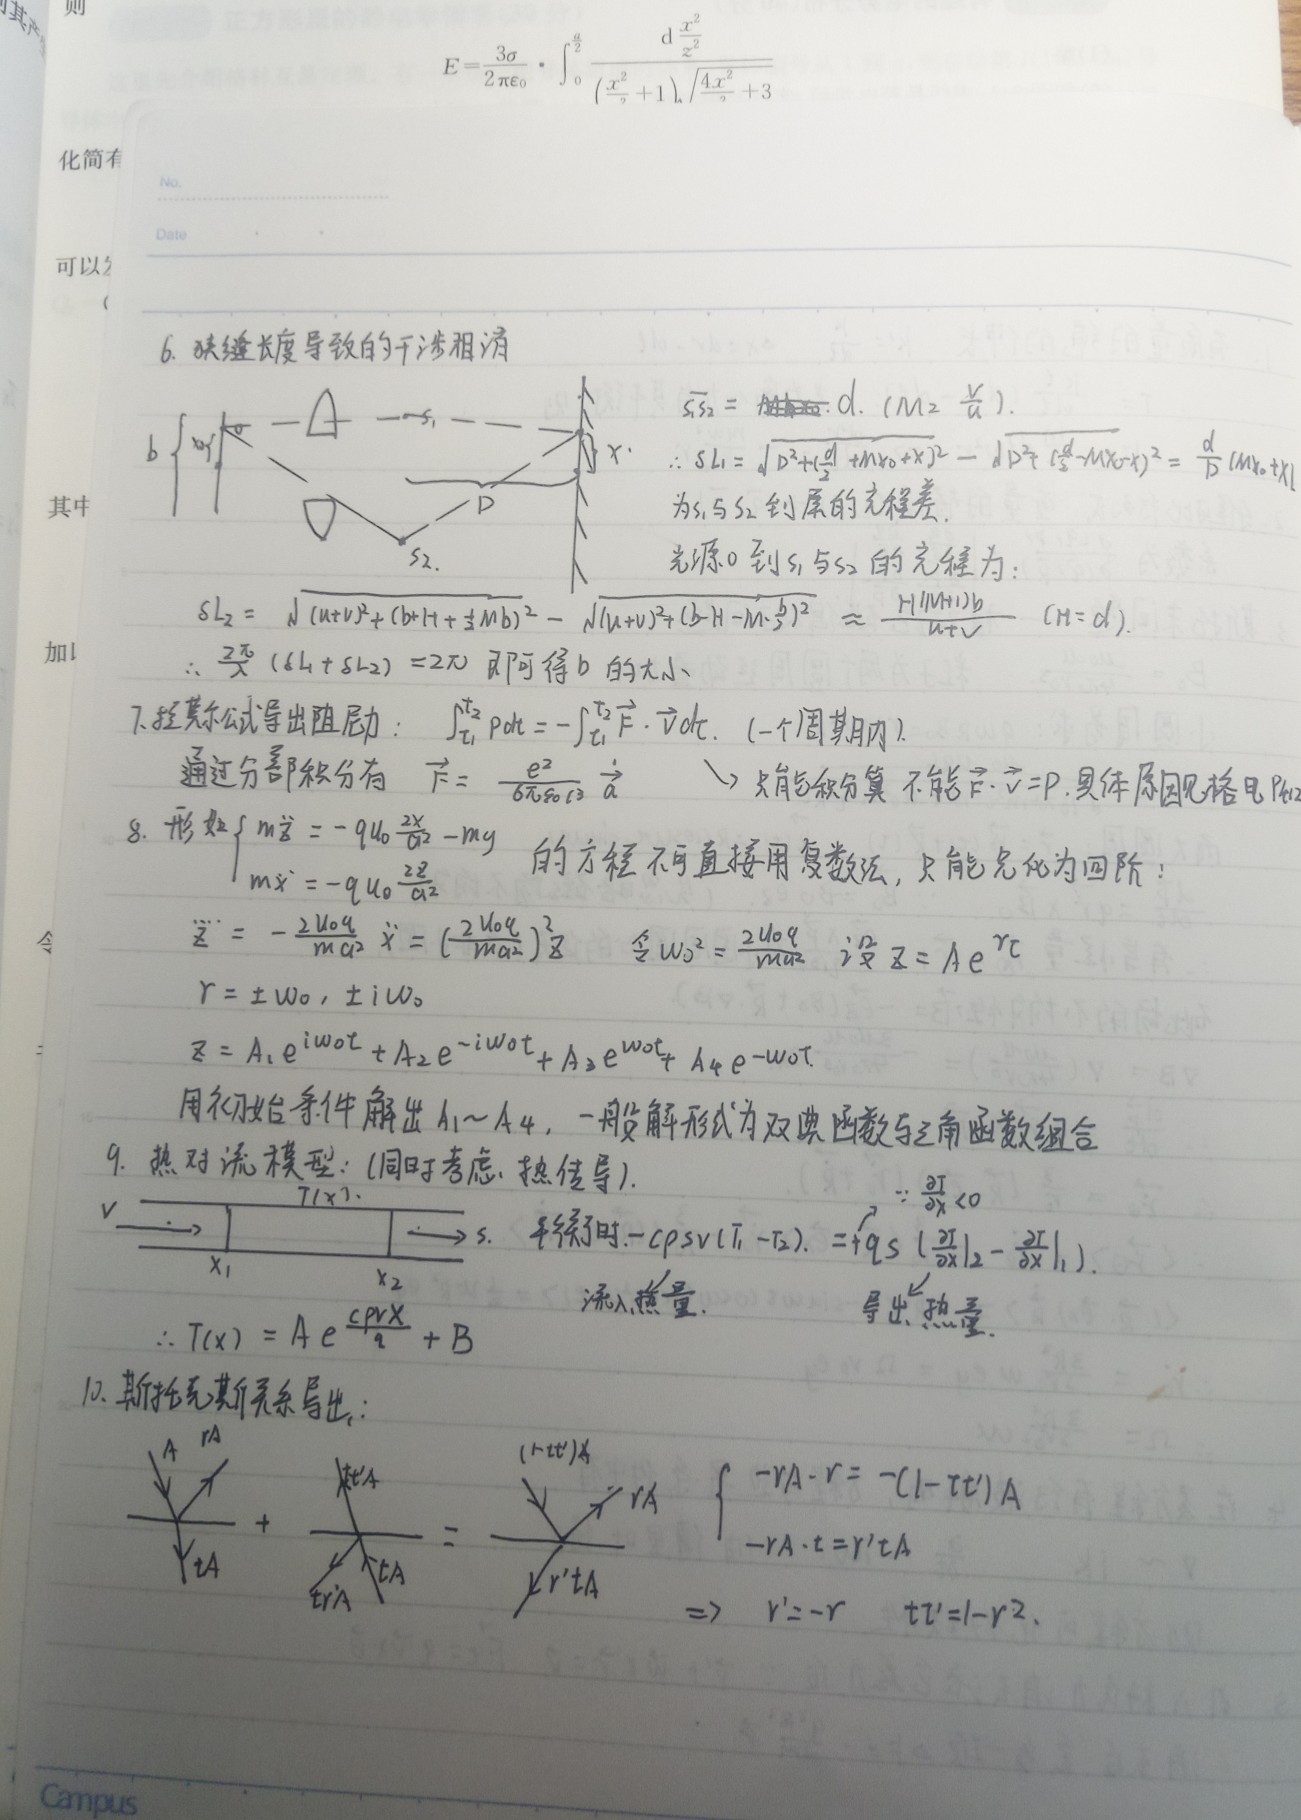 则
E = \frac{3σ}{2πε₀} · ∫_0^{\frac{a}{2}} \frac{d\frac{x²}{z²}}{(\frac{x²}{}+1)\sqrt{\frac{4x²}{}+3}}
化简有
可以
其中
加
令
No.
Date
6. 狭缝长度导致的干涉相消
b x₀ O S₁ S₂ D x
S₁S₂ = d. (M= \frac{v}{u}).
∴ δL₁ = \sqrt{D²+(\frac{d}{2}+Mx₀+x)²} - \sqrt{D²+(\frac{d}{2}-Mx₀-x)²} = \frac{d}{D}(Mx₀+x)
为S₁与S₂到屏的光程差.
光源O到S₁与S₂的光程为:
δL₂ = \sqrt{(u+v)²+(b+H+\frac{1}{2}Mb)²} - \sqrt{(u+v)²+(b-H-M·\frac{b}{2})²} ≈ \frac{H(M+1)b}{u+v} (H=d).
∴ \frac{2π}{λ}(δL₁+δL₂) = 2π 即可得b的大小
7. 拉莫尔公式导出阻尼力: ∫_{t₁}^{t₂} Pdt = -∫_{t₁}^{t₂} \vec{F}·\vec{v}dt. (一个周期内).
通过分部积分有 \vec{F} = \frac{e²}{6πε₀c³} \dot{\vec{a}} ↘ 只能积分算 不能\vec{F}·\vec{v}=P. 具体原因见格电
8. 形如 { m\ddot{z} = -qu₀\frac{2x}{a²} - mg
m\ddot{x} = -qu₀\frac{2z}{a²}
的方程不可直接用复数法, 只能先化为四阶:
\ddddot{z} = -\frac{2u₀q}{ma²}\ddot{x} = (\frac{2u₀q}{ma²})²z 令ω₀² = \frac{2u₀q}{ma²} 设z = Ae^{rt}
r = ±ω₀, ±iω₀
z = A₁e^{iω₀t} + A₂e^{-iω₀t} + A₃e^{ω₀t} + A₄e^{-ω₀t}.
用初始条件解出A₁~A₄, 一般解形式为双曲函数与三角函数组合
9. 热对流模型: (同时考虑热传导).
∵ \frac{∂T}{∂x}<0
V T(x). S. x₁ x₂
平衡时. -cρsv(T₁-T₂). = +qs(\frac{∂T}{∂x}|₂ - \frac{∂T}{∂x}|₁).
流入热量. 导出热量.
∴ T(x) = Ae^{\frac{cρvx}{q}} + B
10. 斯托克斯关系导出:
A rA tA + tt'A tr'A tA = (1-tt')A rA r'tA
{ -rA·r = -(1-tt')A
-rA·t = r'tA
=> r'=-r tt'=1-r².
Campus